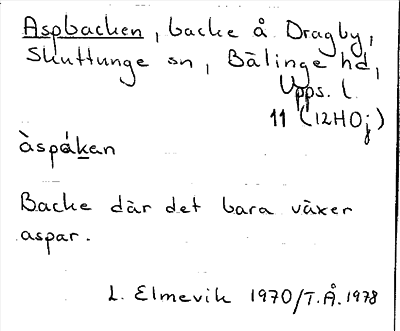 Aspbacken, backe å Dragby,
Skuttunge sn, Bälinge hd,
Upps. l.
11 (12H0j)
àspákan
Backe där det bara växer
aspar.
L. Elmevik 1970/T.Å. 1978